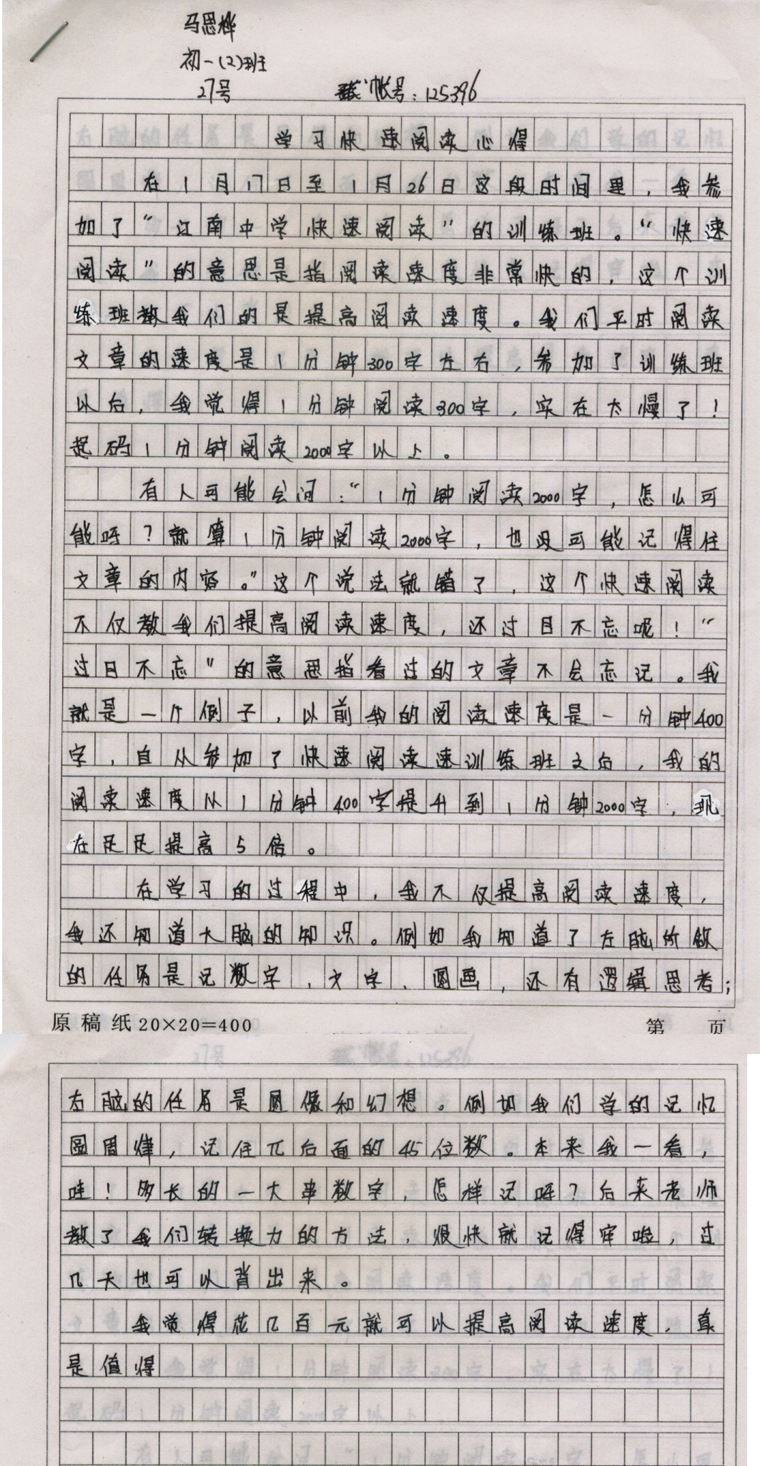 马思烨
初一(2)班
27号 帐号:125396
学习快速阅读心得
在1月17日至1月26日这段时间里,我参
加了“江南中学快速阅读”的训练班。“快速
阅读”的意思是指阅读速度非常快的,这个训
练班教我们的是提高阅读速度。我们平时阅读
文章的速度是1分钟300字左右,参加了训练班
以后,我觉得1分钟阅读300字,实在太慢了!
起码1分钟阅读2000字以上。
有人可能会问:“1分钟阅读2000字,怎么可
能呀?就算1分钟阅读2000字,也没可能记得住
文章的内容。”这个说法就错了,这个快速阅读
不仅教我们提高阅读速度,还过目不忘呢!“
过目不忘”的意思指看过的文章不会忘记。我
就是一个例子,以前我的阅读速度是一分钟400
字,自从参加了快速阅读速训练班之后,我的
阅读速度从1分钟400字提升到1分钟2000字,现
在足足提高5倍。
在学习的过程中,我不仅提高阅读速度,
我还知道大脑的知识。例如我知道了左脑所做
的任务是记数字、文字、图画,还有逻辑思考;
原稿纸20×20=400 第 页
右脑的任务是图像和幻想。例如我们学的记忆
圆周率,记住π后面的45位数。本来我一看,
哇!多长的一大串数字,怎样记呀?后来老师
教了我们转换力的方法,很快就记得牢啦,过
几天也可以背出来。
我觉得花几百元就可以提高阅读速度,真
是值得